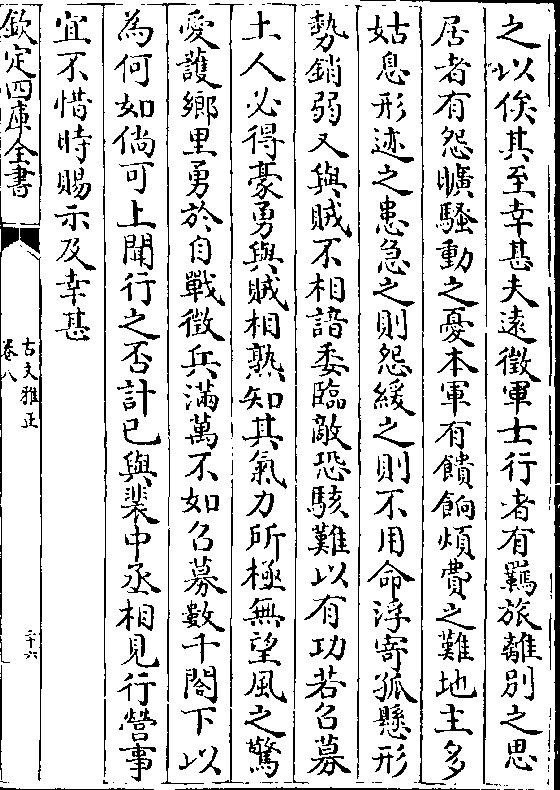 之以俟其至幸甚夫遠徵軍士行者有羈旅離別之思
居者有怨曠騷動之憂本軍有饋餉煩費之難地主多
姑息形迹之患急之則怨緩之則不用命浮寄孤懸形
勢銷弱又與賊不相諳委臨敵恐駭難以有功若召募
土人必得豪勇與賊相熟知其氣力所極無望風之驚
愛護鄉里勇於自戰徵兵滿萬不如召募數千閤下以
為何如倘可上聞行之否計已與裴中丞相見行營事
宜不惜時賜示及幸甚
欽定四庫全書
古文雅正
卷八
二十六